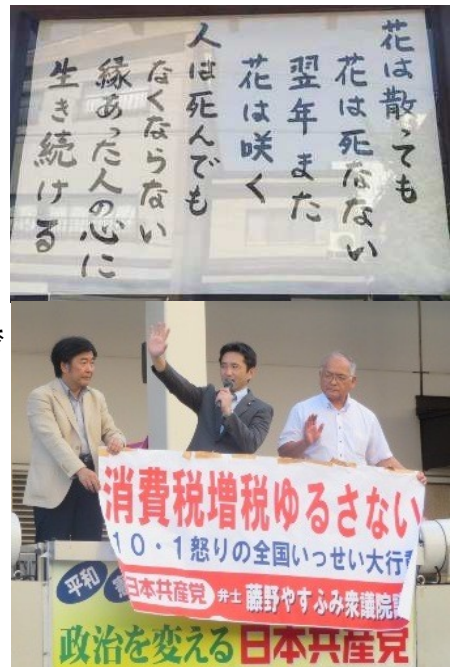 花は散っても
花は死なない
翌年また
花は咲く
人は死んでも
なくならない
縁あった人の心に
生き続ける
消費税増税ゆるさない
10・1怒りの全国いっせい大行
日本共産党 弁士 藤野やすふみ衆議院
平和
政治を変える日本共産党